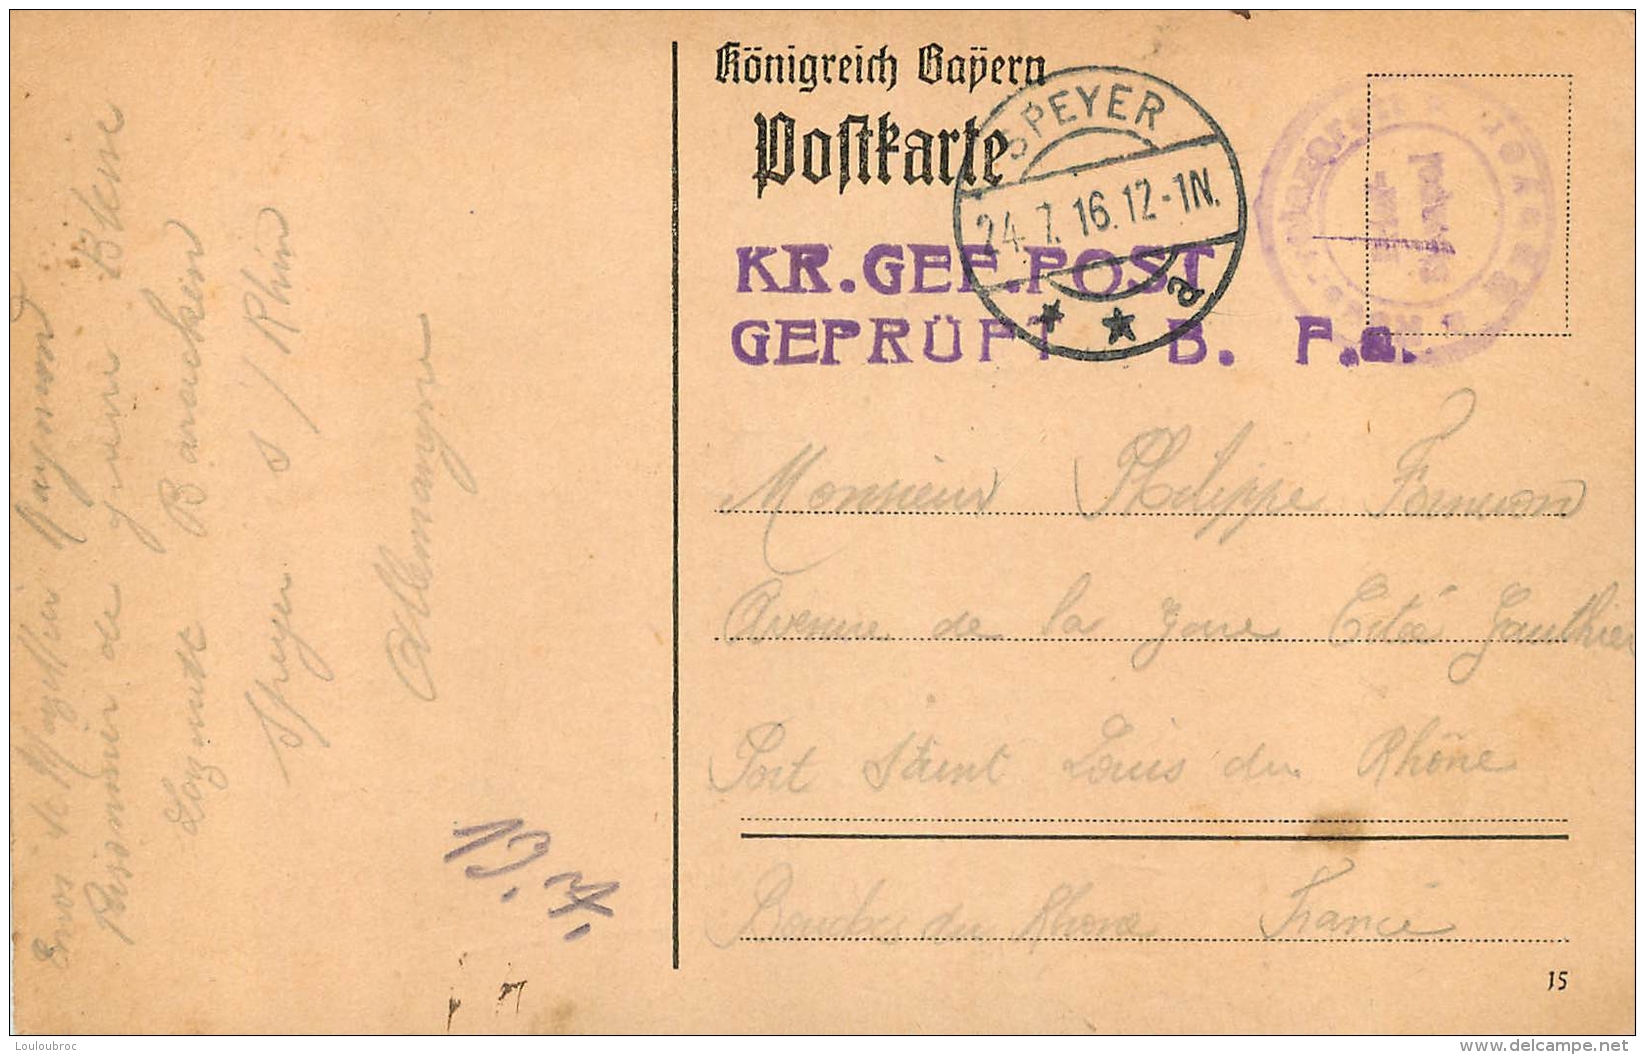 Königreich Bayern
Postkarte
SPEYER
24.7.16.12-1N.
a
KR.GEF.POST
GEPRÜFT B. P.a.
Monsieur Philippe
Avenue de la gare Citée Gauthier
Port Saint Louis du Rhône
Bouches du Rhone France
15
Envoi de Raymond
Prisonnier de guerre
Lazarett Baracken
Speyer s/Rhin
Allemagne
13. 7.
Louloubroc
www.delcampe.net